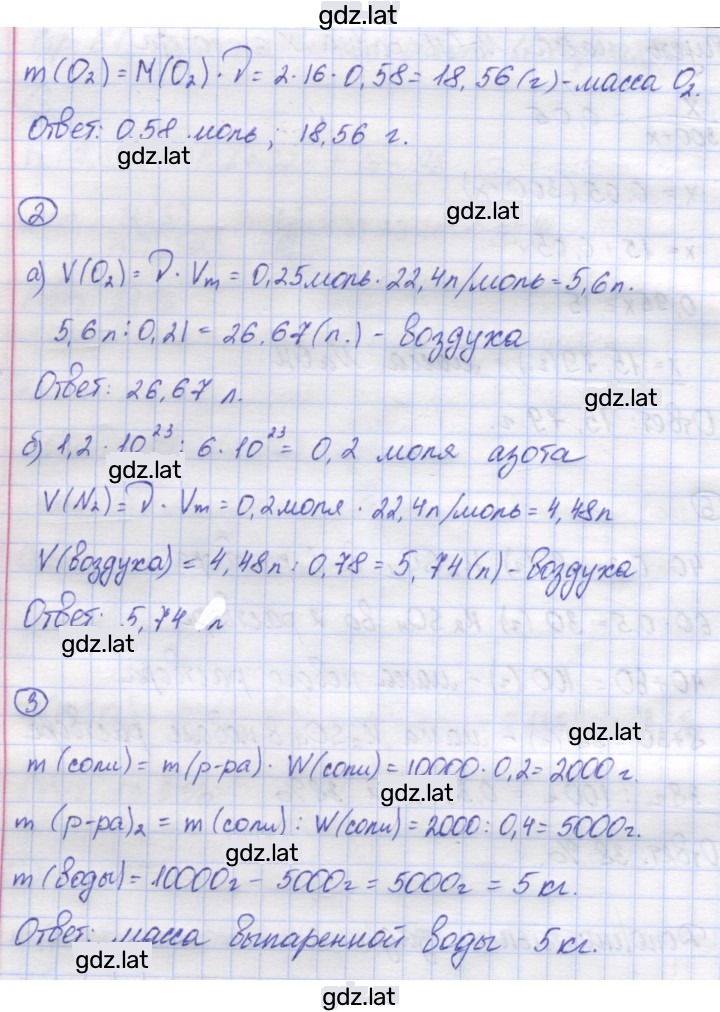 gdz.lat
m(O₂) = M(O₂) · ν = 2·16·0,58 = 18,56 (г) - масса O₂.
Ответ: 0.58 моль; 18,56 г.
gdz.lat
2
gdz.lat
а) V(O₂) = ν · Vm = 0,25моль · 22,4л/моль = 5,6л.
5,6л : 0,21 = 26,67(л.) - воздуха
Ответ: 26,67 л.
gdz.lat
б) 1,2 · 10²³ : 6 · 10²³ = 0,2 моля азота
gdz.lat
V(N₂) = ν · Vm = 0,2моля · 22,4л/моль = 4,48л
V(воздуха) = 4,48л : 0,78 = 5,74(л) - воздуха
Ответ: 5,74 л
gdz.lat
3
gdz.lat
m (соли) = m(р-ра) · W(соли) = 10000 · 0,2 = 2000 г.
gdz.lat
m (р-ра)₂ = m (соли) : W(соли) = 2000 : 0,4 = 5000г.
gdz.lat
m (воды) = 10000г - 5000г = 5000г = 5 кг.
Ответ: масса выпаренной воды 5 кг.
gdz.lat
gdz.lat